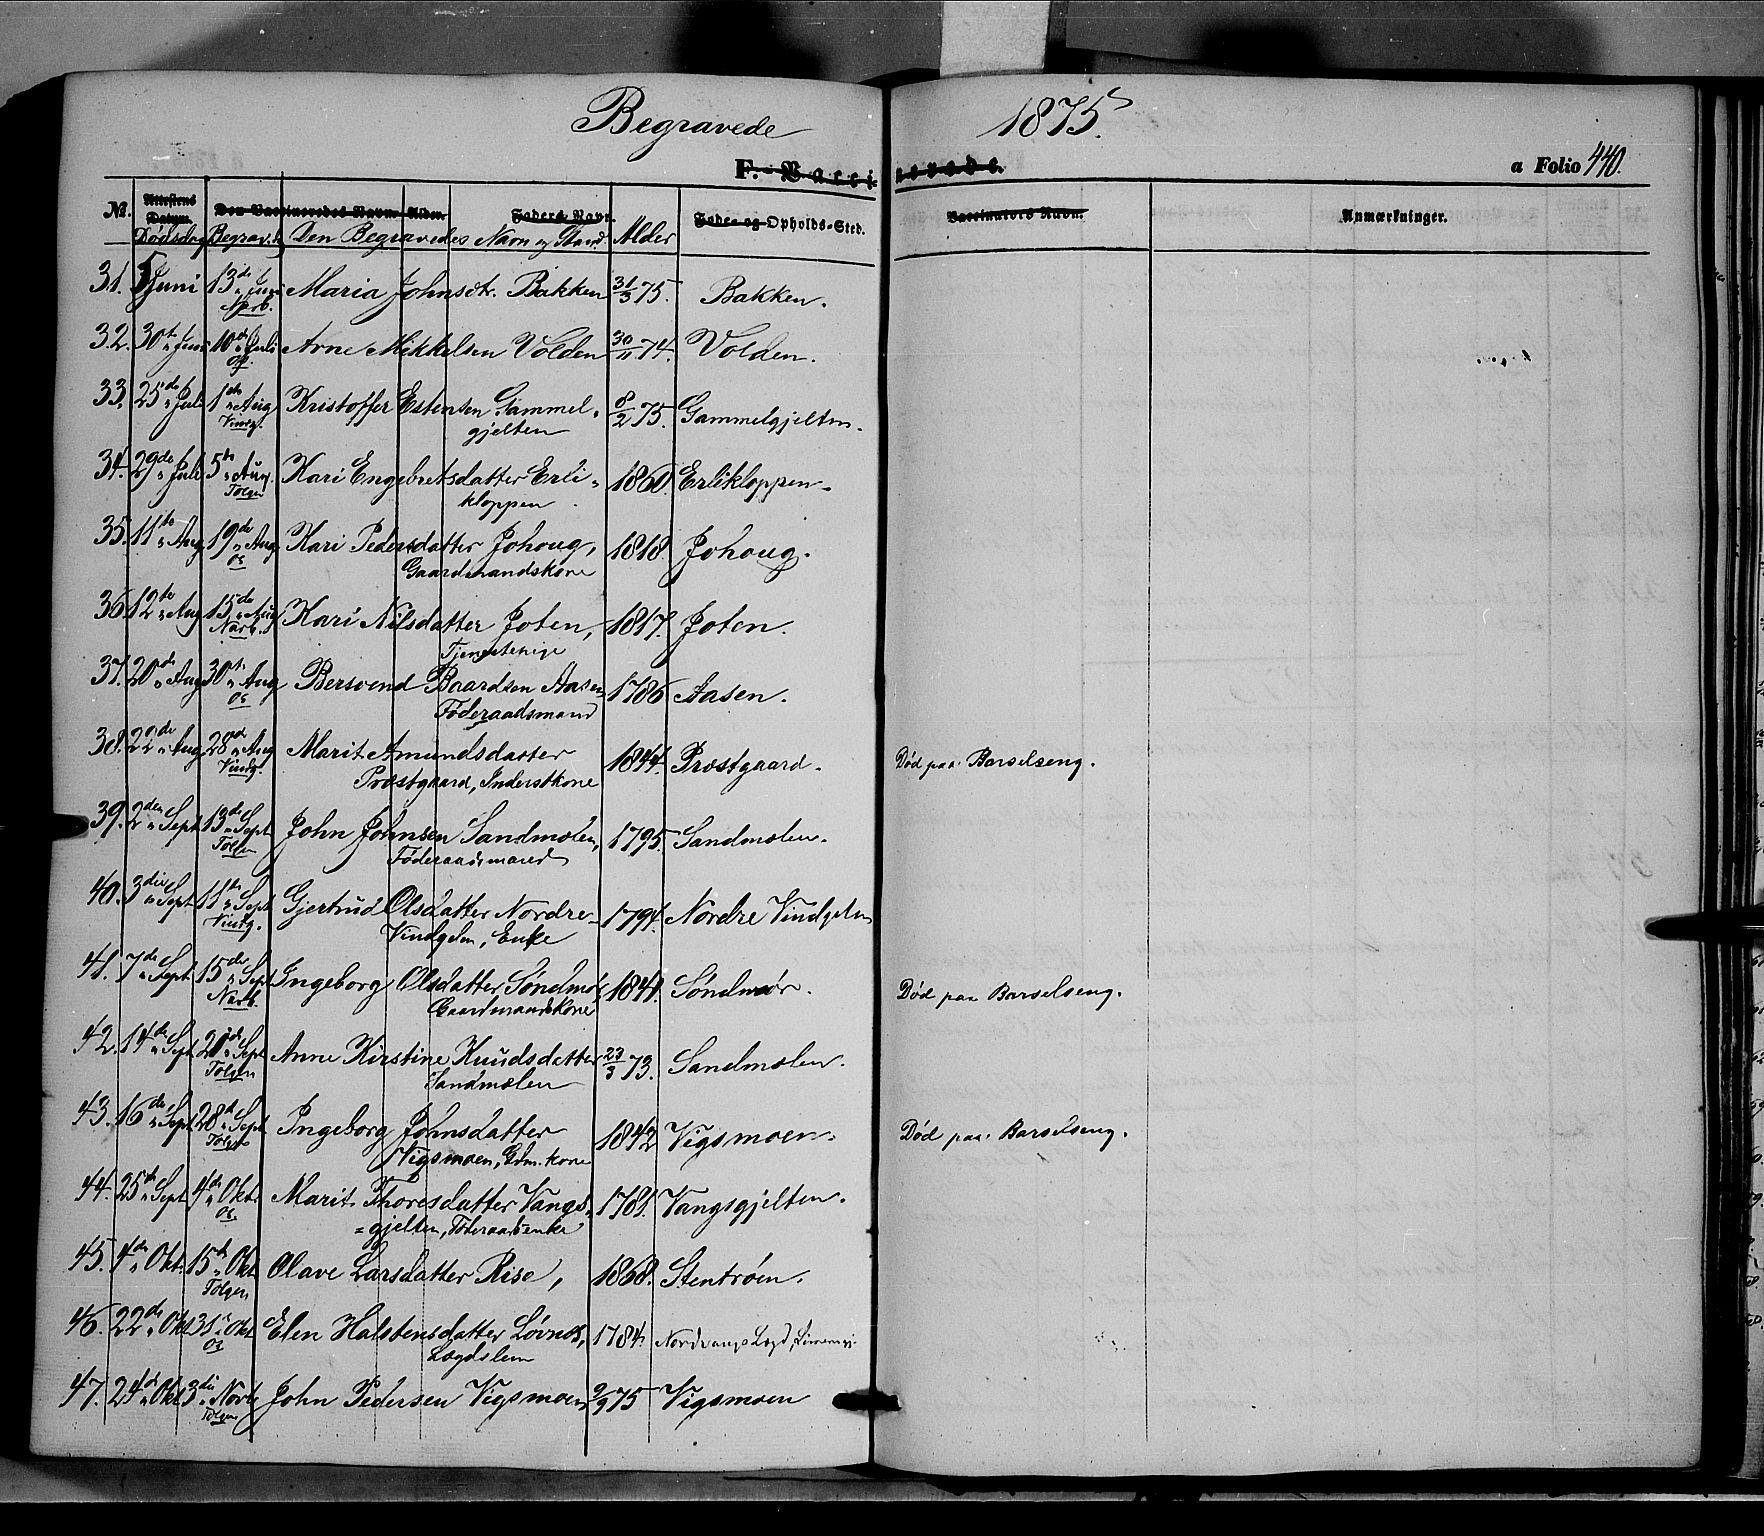 Begravede 1875.
F. Vacci- nerede. a Folio 440.
No. Attestens Datum. Den Vaccineredes Navn. Alder. Faders Navn. Føde- og Opholds-Sted. Vaccinators Navn. Anmærkninger.
Dødsdag Begrav.d. Den Begravedes Navn og Stand Alder
31. Juni 13de Juni Maria Johnsdtr. Bakken 31/3 75. Bakken.
Narb.
32. 30te Juni 10de Juli Arne Mikkelsen Volden 30/11 74. Volden.
Os.
33. 25de Juli 1ste Aug Kristoffer Estensen Gammel- 8/2 75. Gammelgjelten.
Vindg. gjelten
34. 29de Juli 5te Aug. Kari Engebretsdatter Erli- 1860. Erlikloppen.
Tolgen kloppen
35. 11te Aug 19de Aug Kari Pedersdatter Johoug, 1818. Johoug.
Os Gaardmandskone
36. 12te Aug 15de Aug Kari Nilsdatter Joten, 1817. Joten.
Narb. Tjenestepige
37. 20de Aug 30te Aug Bersvend Baardsen Aasen 1786 Aasen.
Os Føderaadsmand
38. 22de Aug 28de Aug Marit Amundsdatter 1844. Præstgaard. Død paa Barselseng.
Vindg. Præstgaard, Inderstkone
39. 2den Sept 13de Sept John Johnsen Sandmælen, 1795. Sandmælen.
Tolgen Føderaadsmand
40. 3die Sept 11te Sept Gjertrud Olsdatter Nordre- 1794. Nordre Vindgelen
Vindg. Vindgelen, Enke
41. 7de Sept. 15de Sept Ingeborg Olsdatter Søndmør 1841. Søndmør. Død paa Barselseng.
Narb. Gaardmandskone
42. 14de Sept 20de Sept Anne Kirstine Knudsdatter 23/3 73. Sandmælen.
Tolgen Sandmælen
43. 16de Sept 28de Sept Ingeborg Johnsdatter 1842 Vigsmoen. Død paa Barselseng.
Tolgen Vigsmoen, Gdm.kone
44. 25de Sept 4de Okt. Marit Thoresdatter Vangs- 1781. Vangsgjelten.
Os. =gjelten, Føderaadsenke
45. 4de Okt. 15de Okt Olave Larsdatter Rise, 1868. Stentrøen.
Tolgen
46. 22de Okt 31te Okt Elen Halstensdatter Løvnes, 1784. Nordvangs Lægd,
Os Lægdslem
47. 24de Okt 3die Novbr John Pedersen Vigsmoen 9/9 75 Vigsmoen
Tolgen